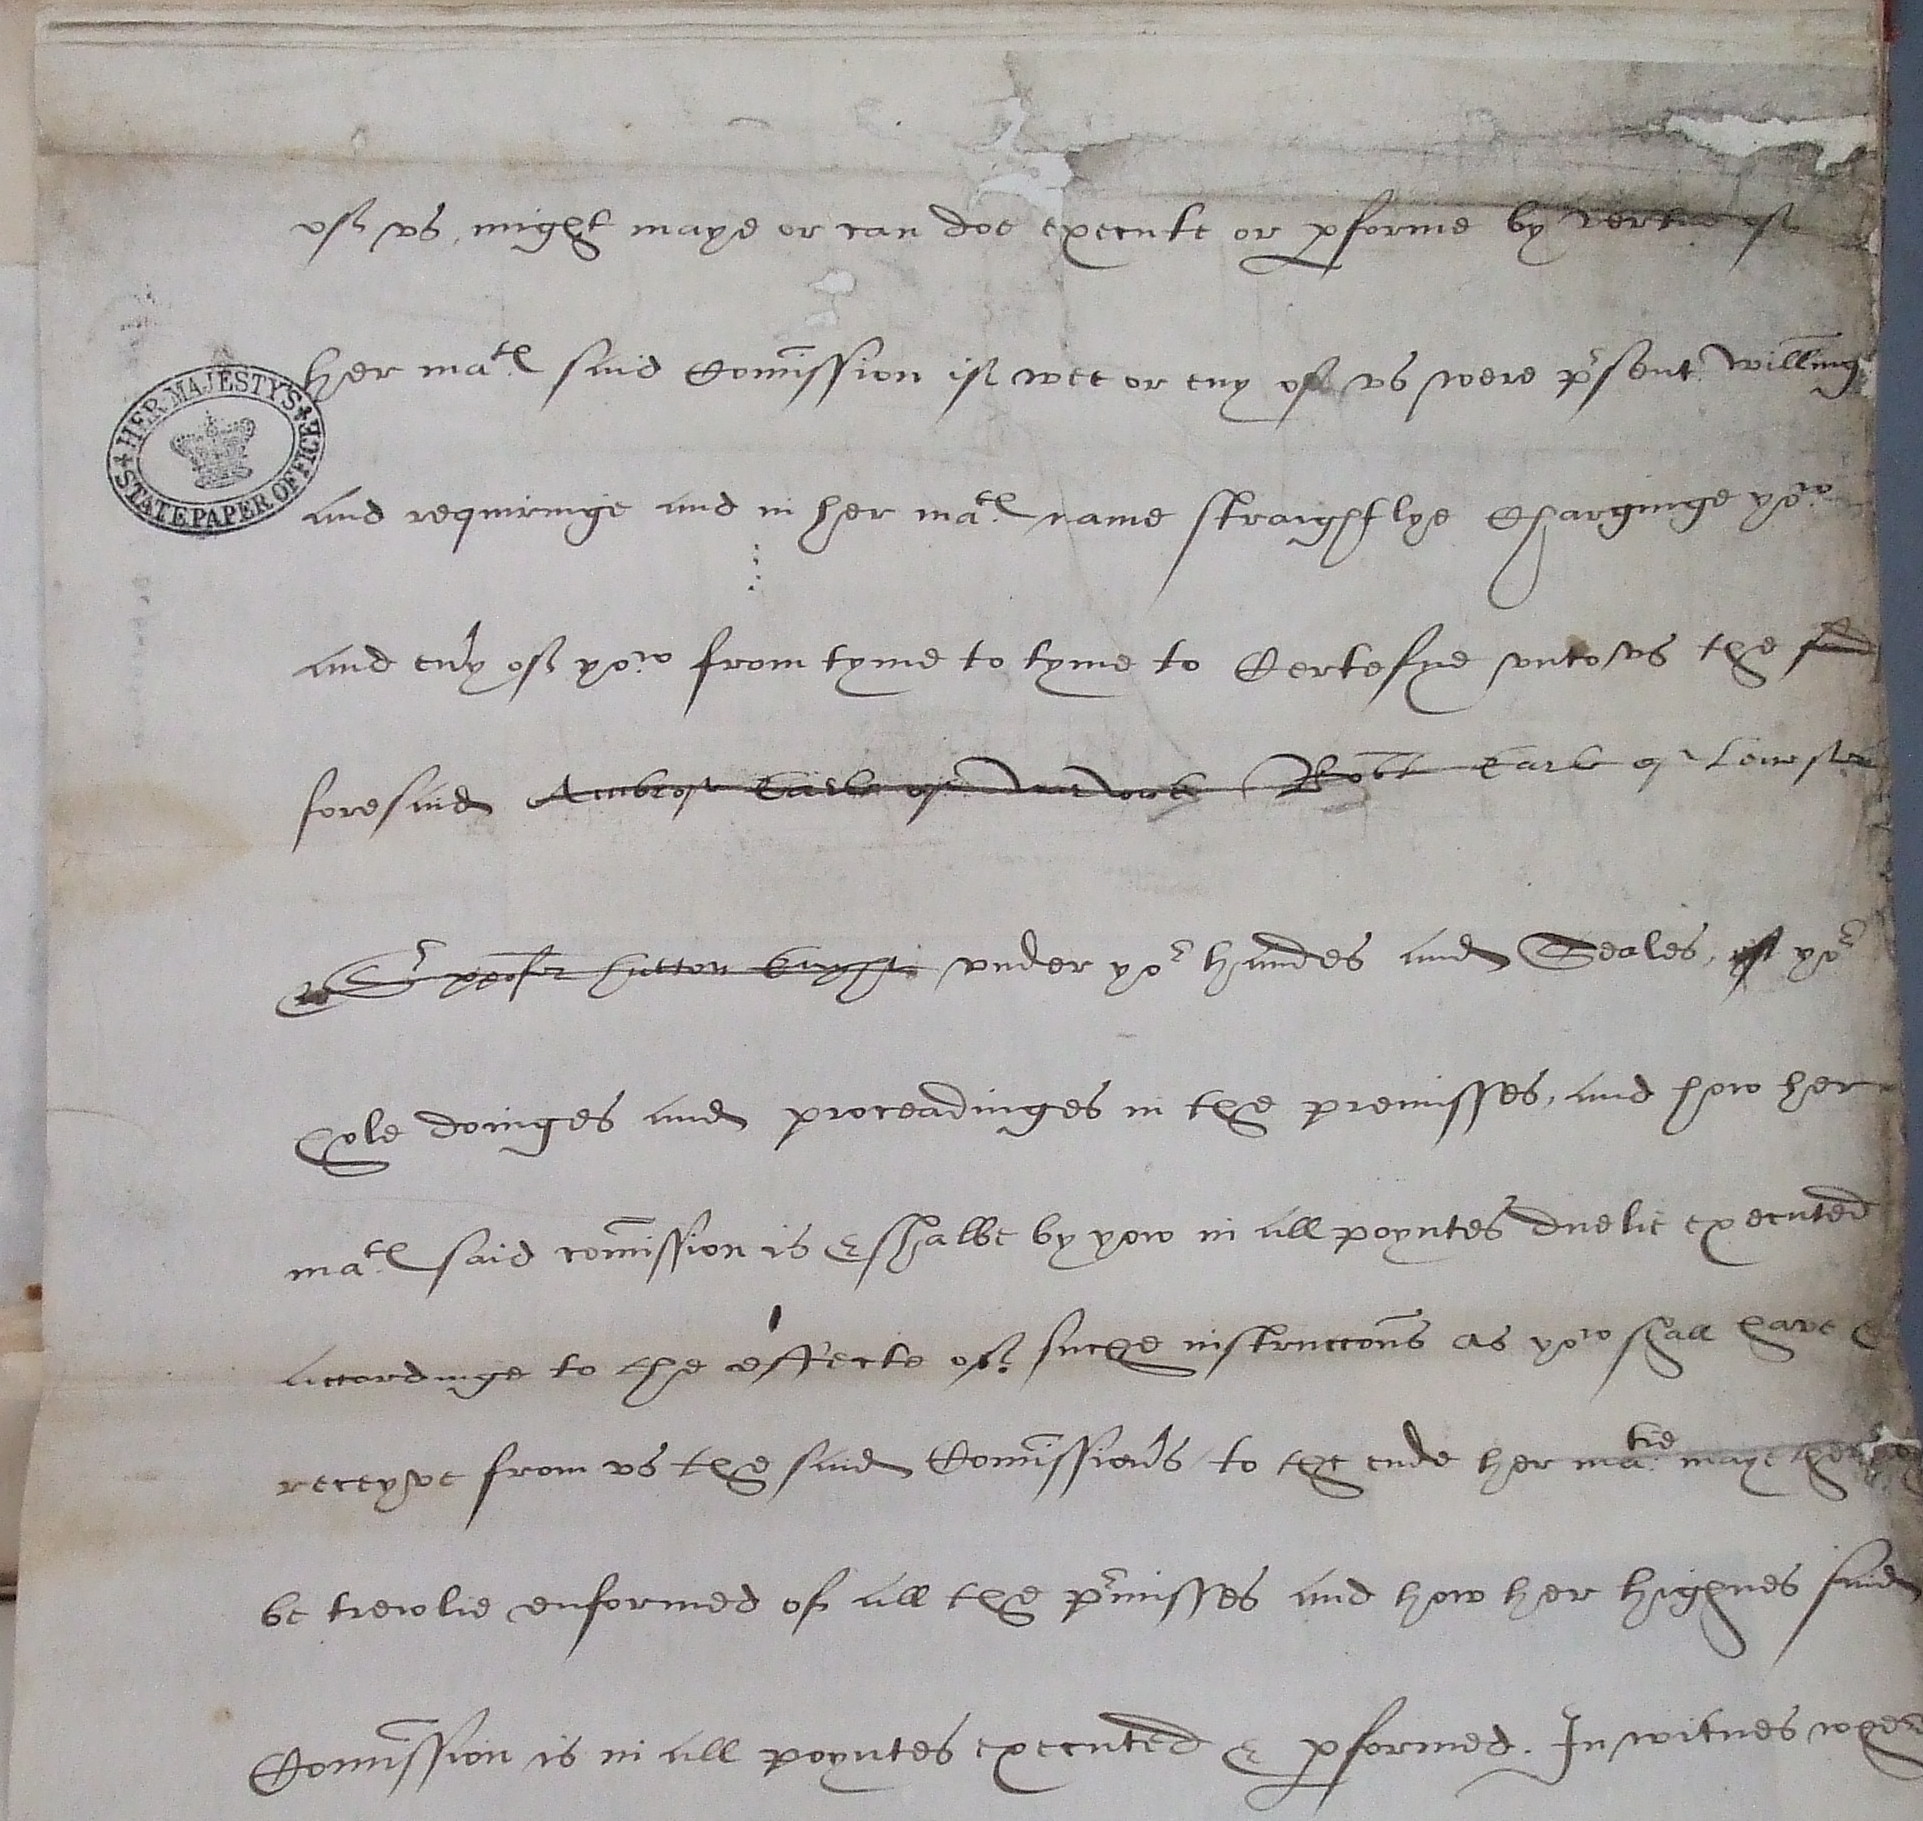 of us might maye or can doe execute or pforme by vertue of
her ma.te said Comission if wee or eny of us were psent willing
HER MAJESTY'S STATE PAPER OFFICE
and requiringe and in her ma.te name straightlye Charginge yow
and evy of yow from tyme to tyme to Certefye unto us the
foresaid Ambrose Earle of Warwick Robt Earle of Leicester
Sr hatton knyght under yor handes and Seales, of yor
hole doinges and proceadinges in the premisses, and how her
ma.te said comission is & shalbe by yow in all poyntes duelie executed
accordinge to the effecte of suche instruccons as yow shall have &
receyve from us the said Comissions to the ende her ma.tie maye
be trewlie enformed of all the pmisses and how her highnes said
Comission is in all poyntes executed & pformed. In witnes